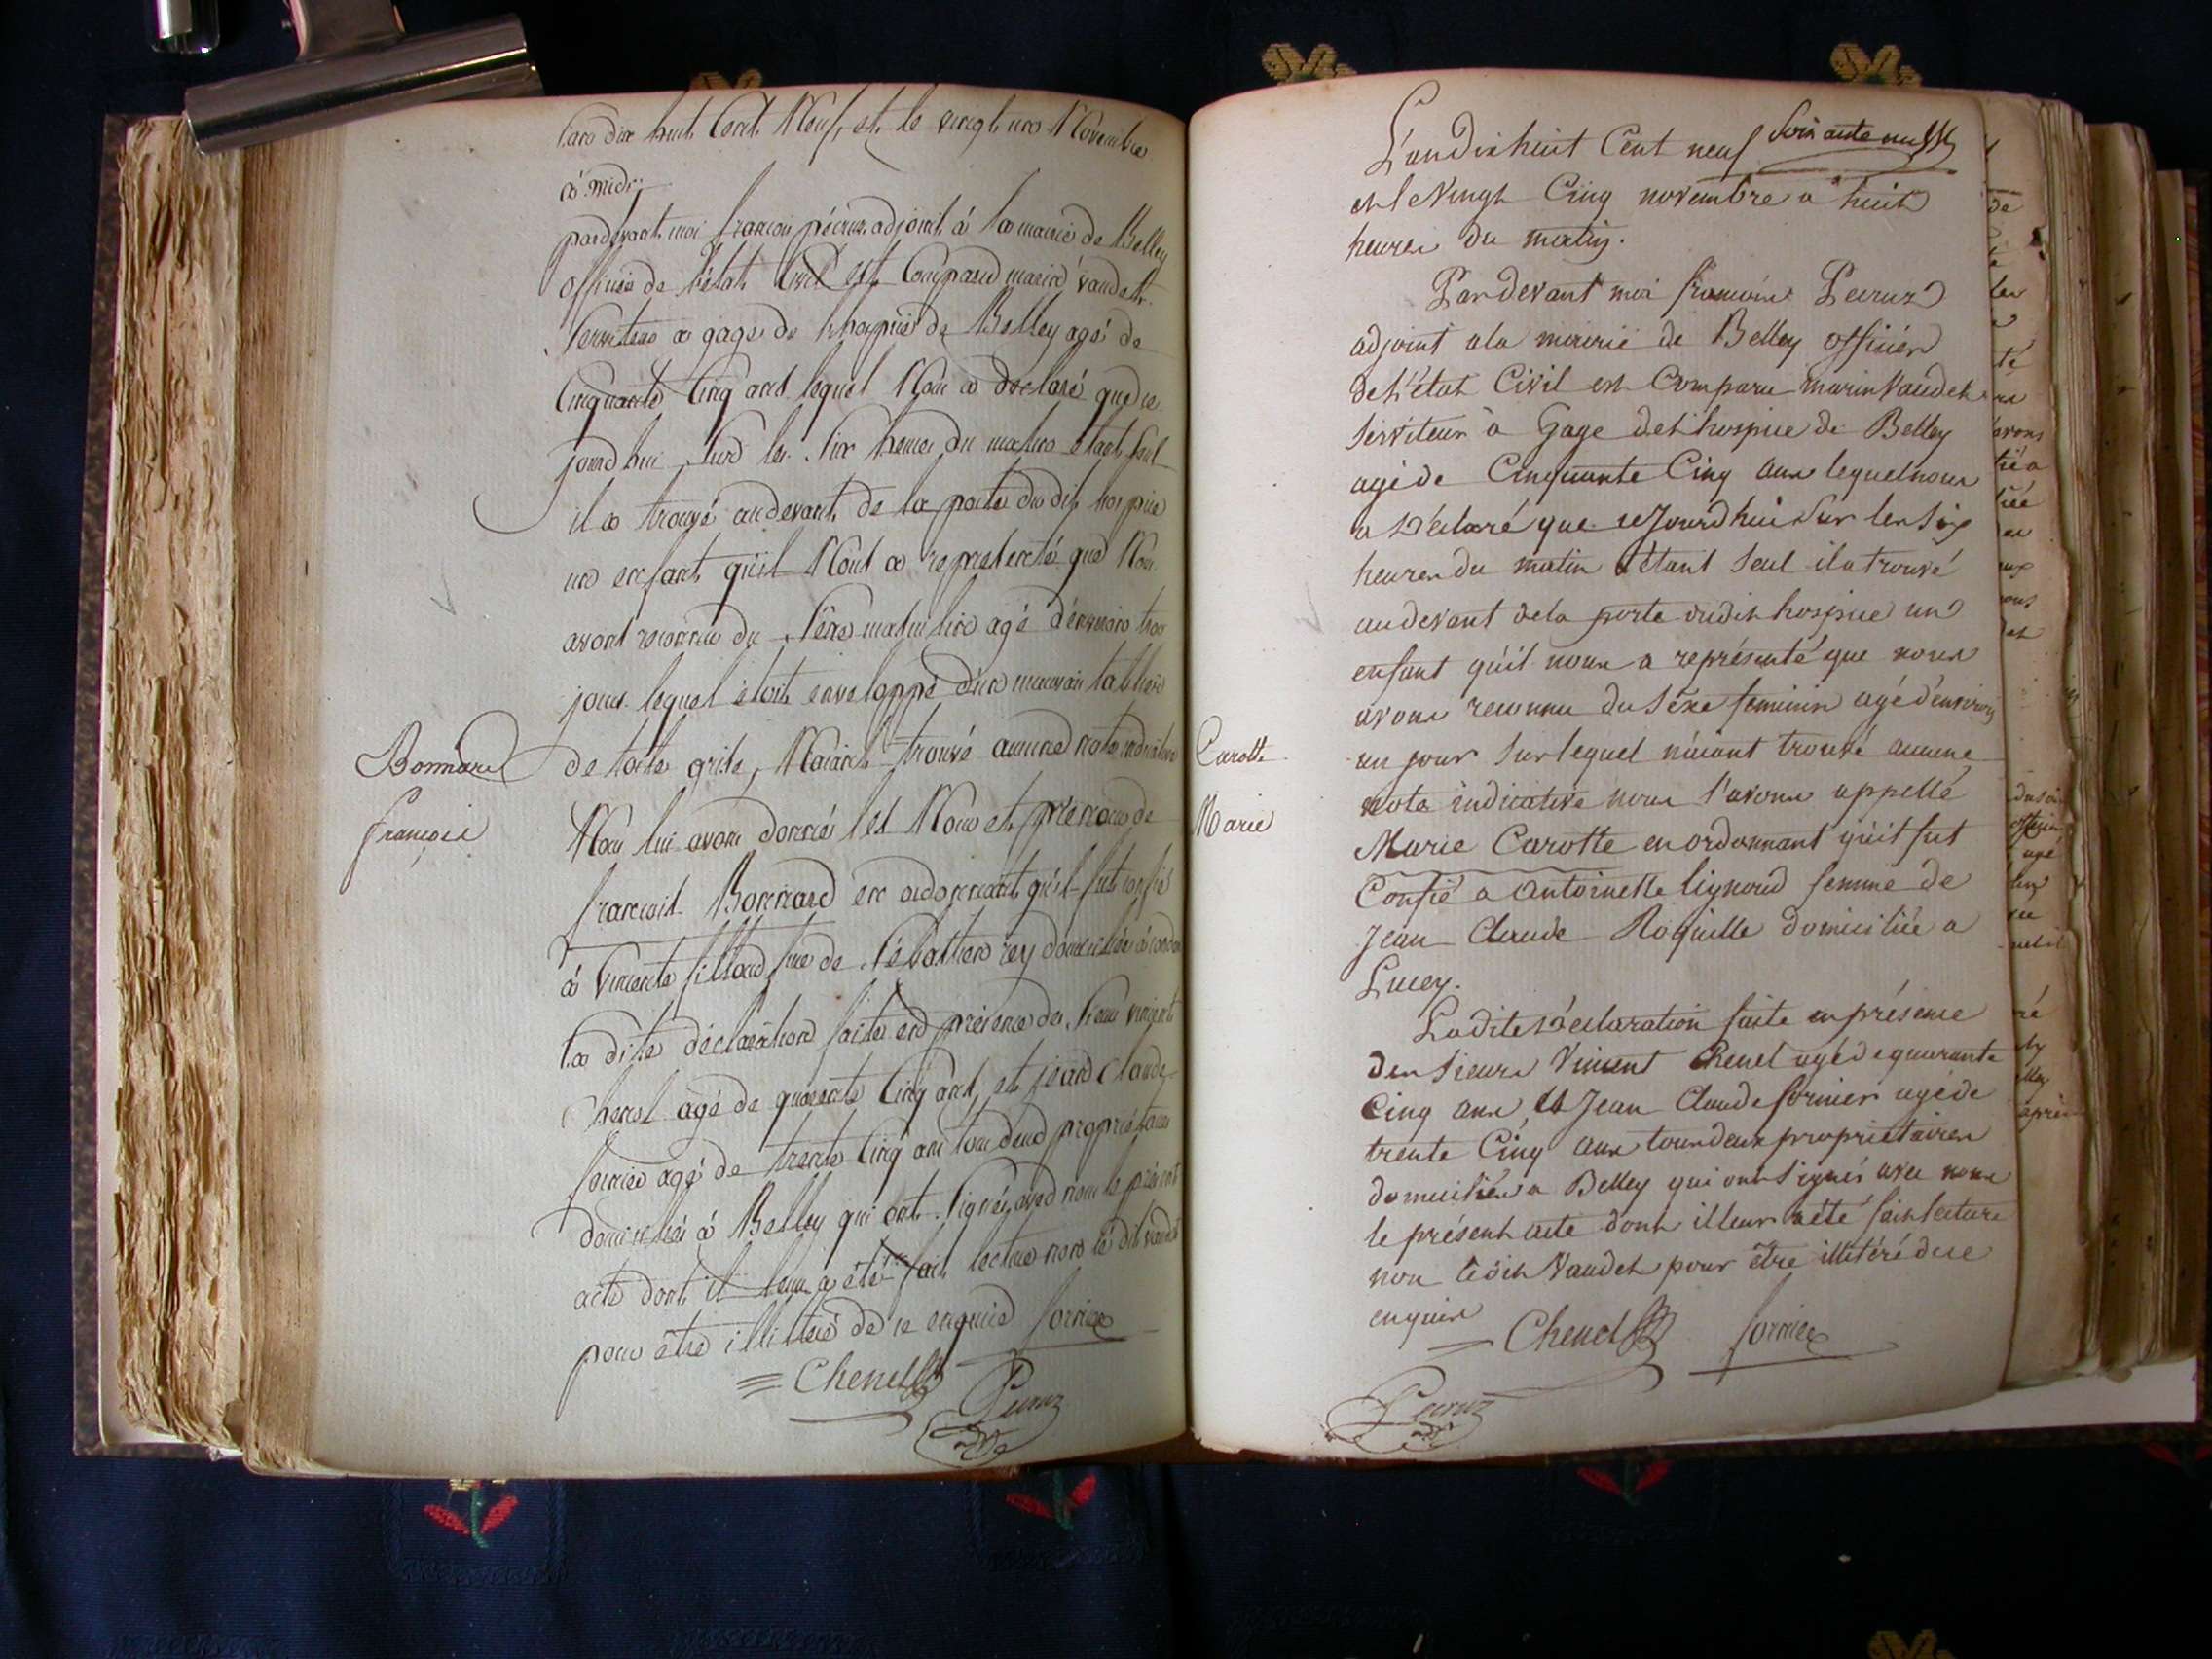 L'an dix huit Cent Neuf, et le vingt un Novembre
à midi
pardevant moi francois pécruz adjoint à la mairie de Belley
officier de l'état Civil est Comparu marin vaudet
serviteur a gage de l'hospice de Belley agé de
Cinquante Cinq ans lequel Nous a declaré que ce
jourd'hui sur les six heures du matin étant seul
il a trouvé audevant de la porte du dit hospice
un enfant qu'il Nous a representé que Nous
avons reconnu du sexe masculin agé d'environ trois
jours lequel étoit enveloppé d'un mauvais tablier
de toile grise, N'aiant trouvé aucune note indicative
Nous lui avons donné les Nom et prénom de
francois Bonnard en ordonnant qu'il fut confié
à Vincente fe de Sébastien rey domiciliée à
La dite déclaration faite en présence des sieurs vincent
Chenel agé de quarante Cinq ans, et jean Claude
fornier agé de trente Cinq ans tous deux propriétaires
domiciliés à Belley qui ont signés avec nous le présent
acte dont il leur a été fait lecture non le dit vaudet
pour être illitéré de ce enquis fornier
Chenel
Pecruz
Bonnard
francois
soixante neuf
L'an dix huit Cent neuf
et le Vingt Cinq novembre a huit
heures du matin.
Pardevant moi francois Pecruz
adjoint a la mairie de Belley officier
de l'état Civil est Comparu marin Vaudet
serviteur à Gage de l'hospice de Belley
agé de Cinquante Cinq ans lequel nous
a Déclaré que ce Jourd'hui sur les six
heures du matin étant seul il a trouvé
au devant de la porte dudit hospice un
enfant qu'il nous a représenté que nous
avons reconnu du séxe feminin agé d'environ
un jour sur lequel n'aiant trouvé aucune
note indicative nous l'avons appellé
Marie Carotte en ordonnant qu'il fut
Confié a Antoinette femme de
Jean Claude Roquille domiciliée a
Lucey.
Ladite Déclaration faite en présence
des sieurs Vincent Chenel agé de quarante
Cinq ans et Jean Claude fornier agé de
trente Cinq ans tous deux propriétaires
domiciliés a Belley qui ont signés avec nous
le présent acte dont il leur a été fait lecture
non ledit Vaudet pour être illitéré de ce
enquis
Chenel fornier
Pecruz
Carotte
Marie